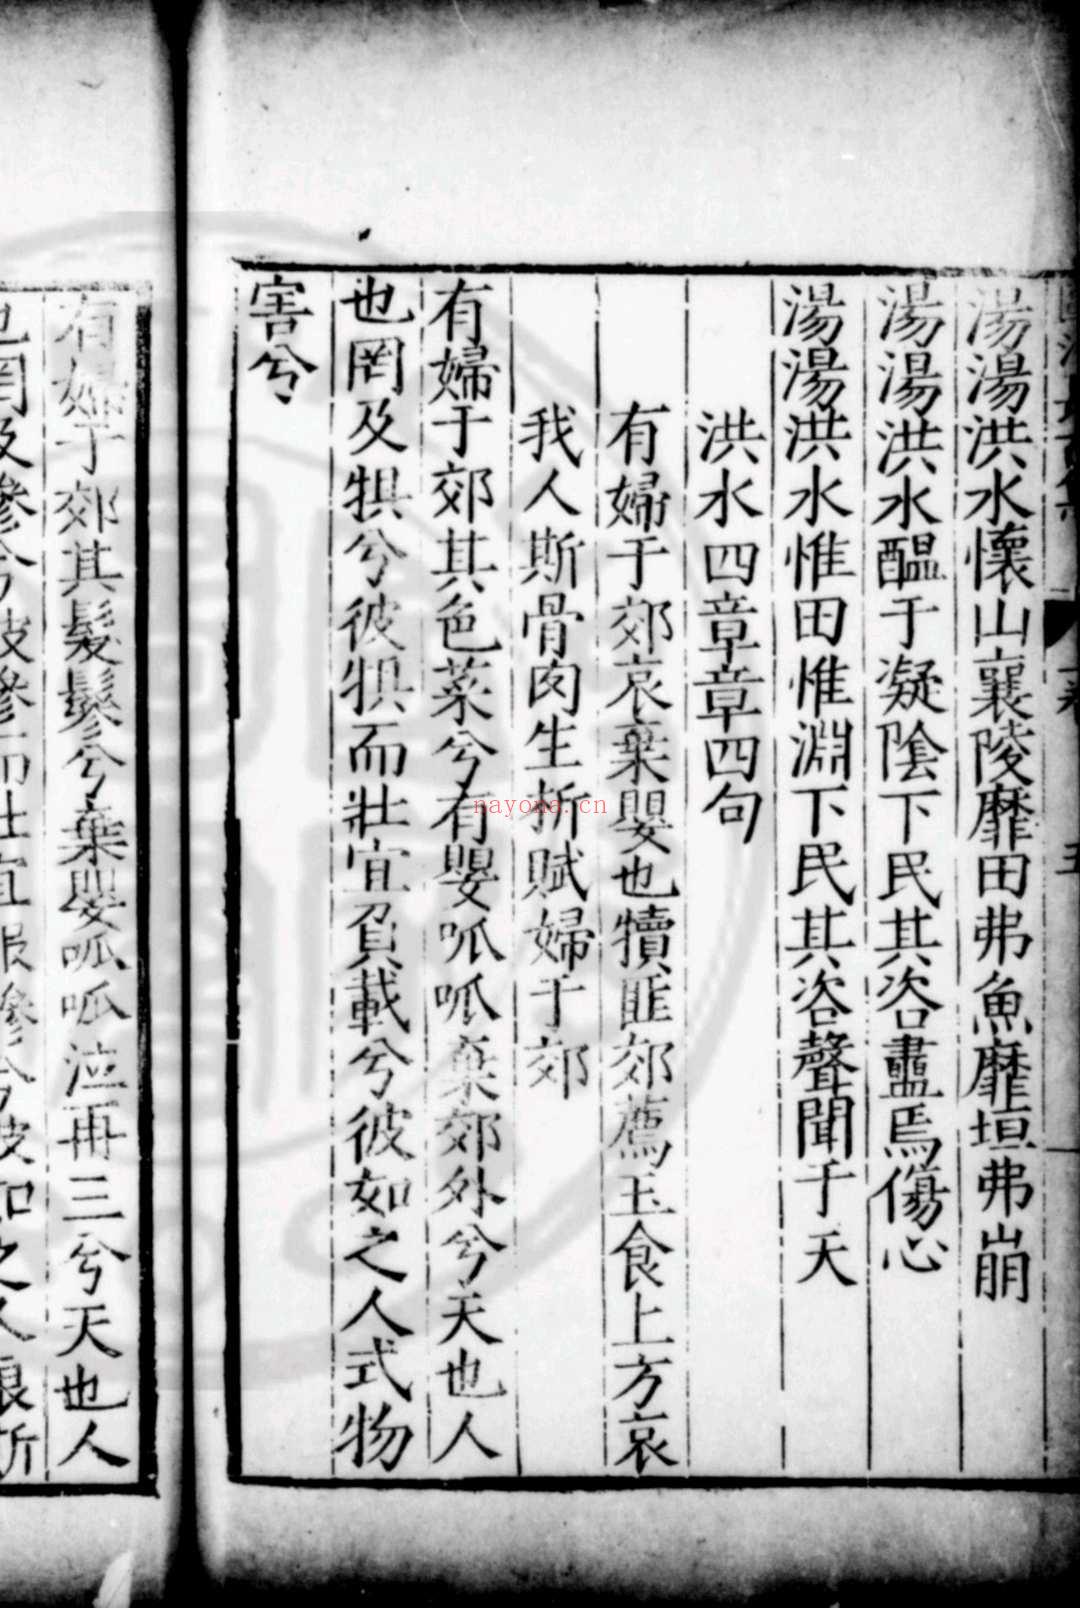 湯湯洪水懷山襄陵靡田弗魚靡垣弗崩
湯湯洪水醖于凝陰下民其咨盡焉傷心
湯湯洪水惟田惟淵下民其咨聲聞于天
洪水四章章四句
有婦于郊哀棄嬰也犢匪郊薦玉食上方哀
我人斯骨肉生折賦婦于郊
有婦于郊其色菜兮有嬰呱呱棄郊外兮天也人
也罔及犋兮彼犋而壯宜負載兮彼如之人式物
害兮
有婦于郊其髮鬖兮棄嬰呱呱泣再三兮天也人
nayona.cn